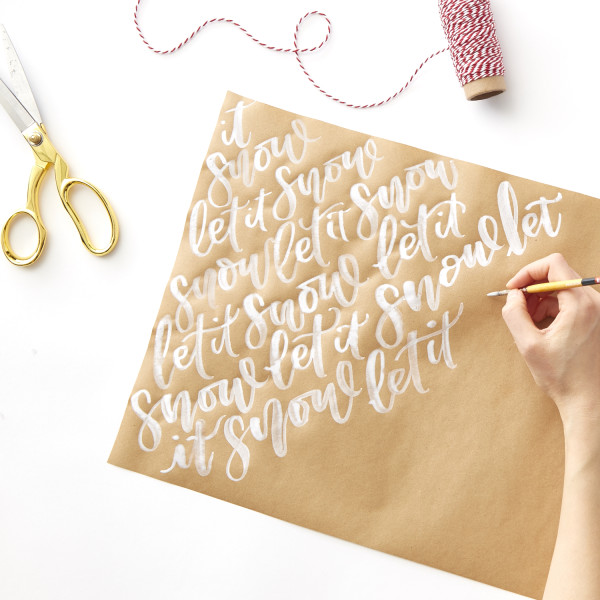 it
snow
let it snow
snow let it snow
let it snow let it
snow let it snow let
it snow let it